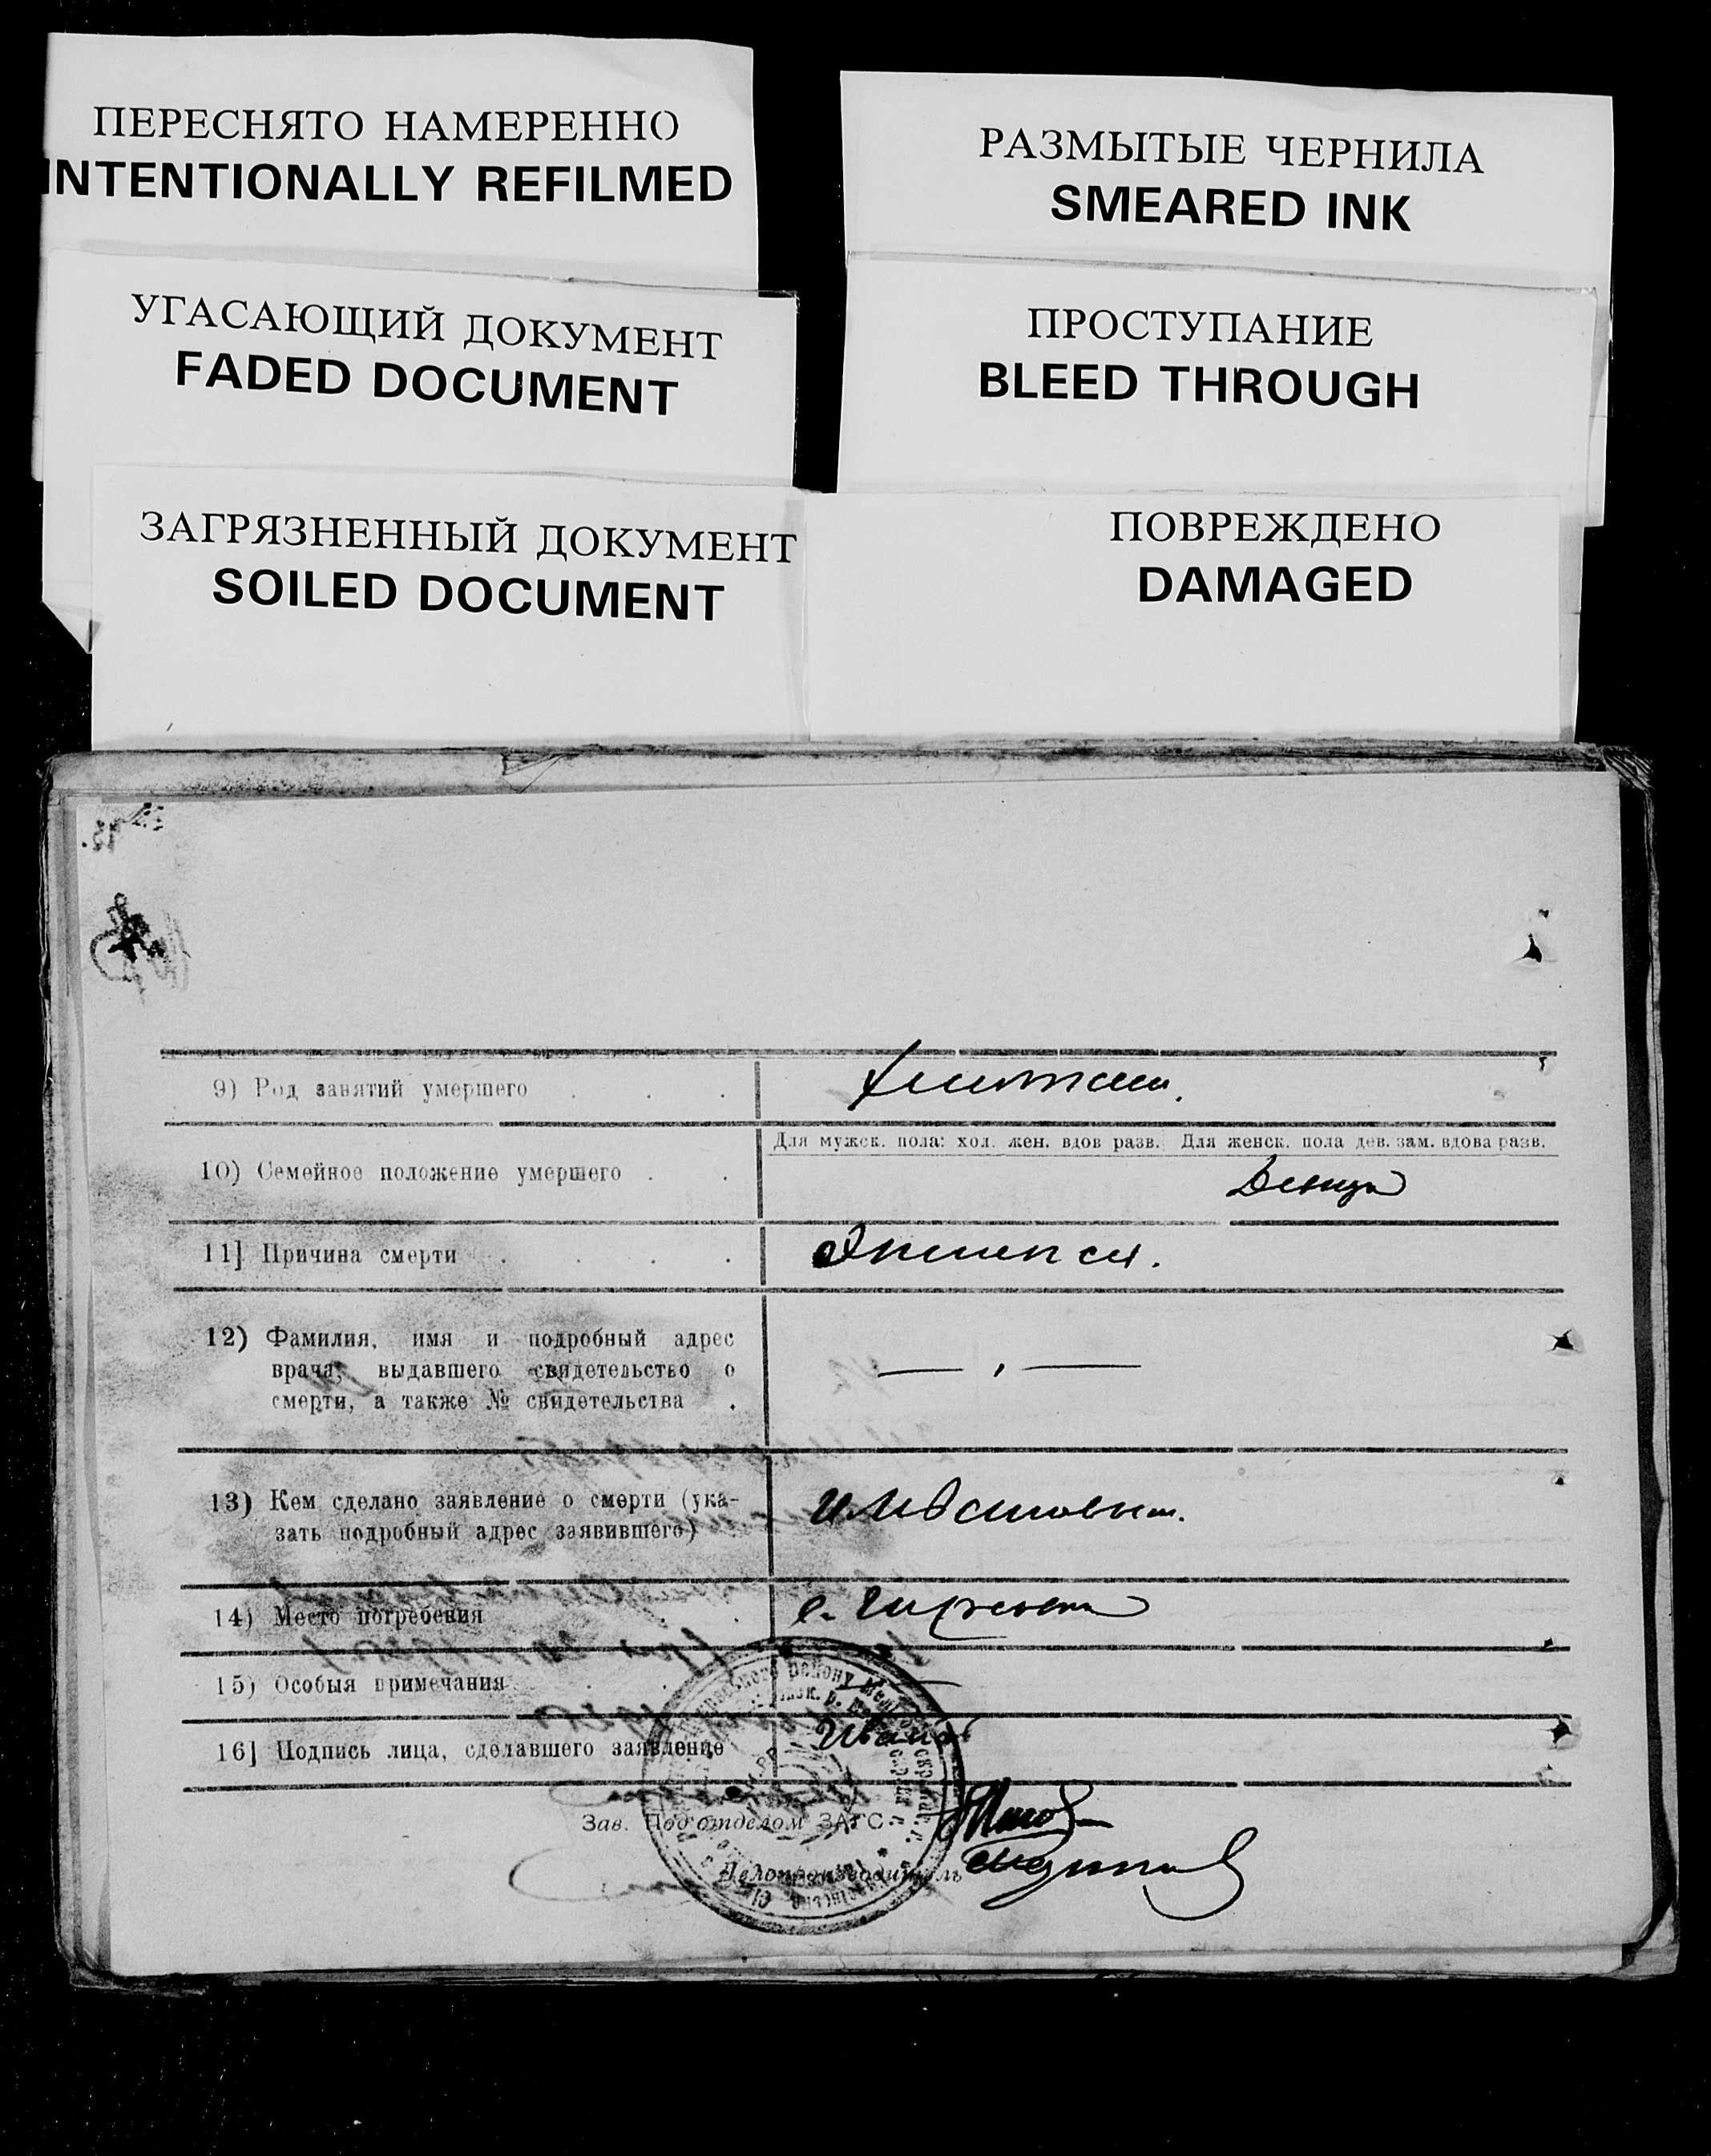 ПЕРЕСНЯТО НАМЕРЕННО
INTENTIONALLY REFILMED
РАЗМЫТЫЕ ЧЕРНИЛА
SMEARED INK
УГАСАЮЩИЙ ДОКУМЕНТ
FADED DOCUMENT
ПРОСТУПАНИЕ
BLEED THROUGH
ЗАГРЯЗНЕННЫЙ ДОКУМЕНТ
SOILED DOCUMENT
ПОВРЕЖДЕНО
DAMAGED
9) Род занятий умершего . . .
Для мужск. пола: хол. жен. вдов разв. Для женск. пола дев. зам. вдова разв.
10) Семейное положение умершего . .
Девица
11] Причина смерти . . . .
Эпилепсия.
12) Фамилия, имя и подробный адрес
врача, выдавшего свидетельство о
смерти, а также № свидетельства .
13) Кем сделано заявление о смерти (ука-
зать подробный адрес заявившего)
14) Место погребения . .
с.
15) Особыя примечания
16] Подпись лица, сделавшего заявление
Иванов
Зав. Подотделом ЗАГС
Делопроизводитель